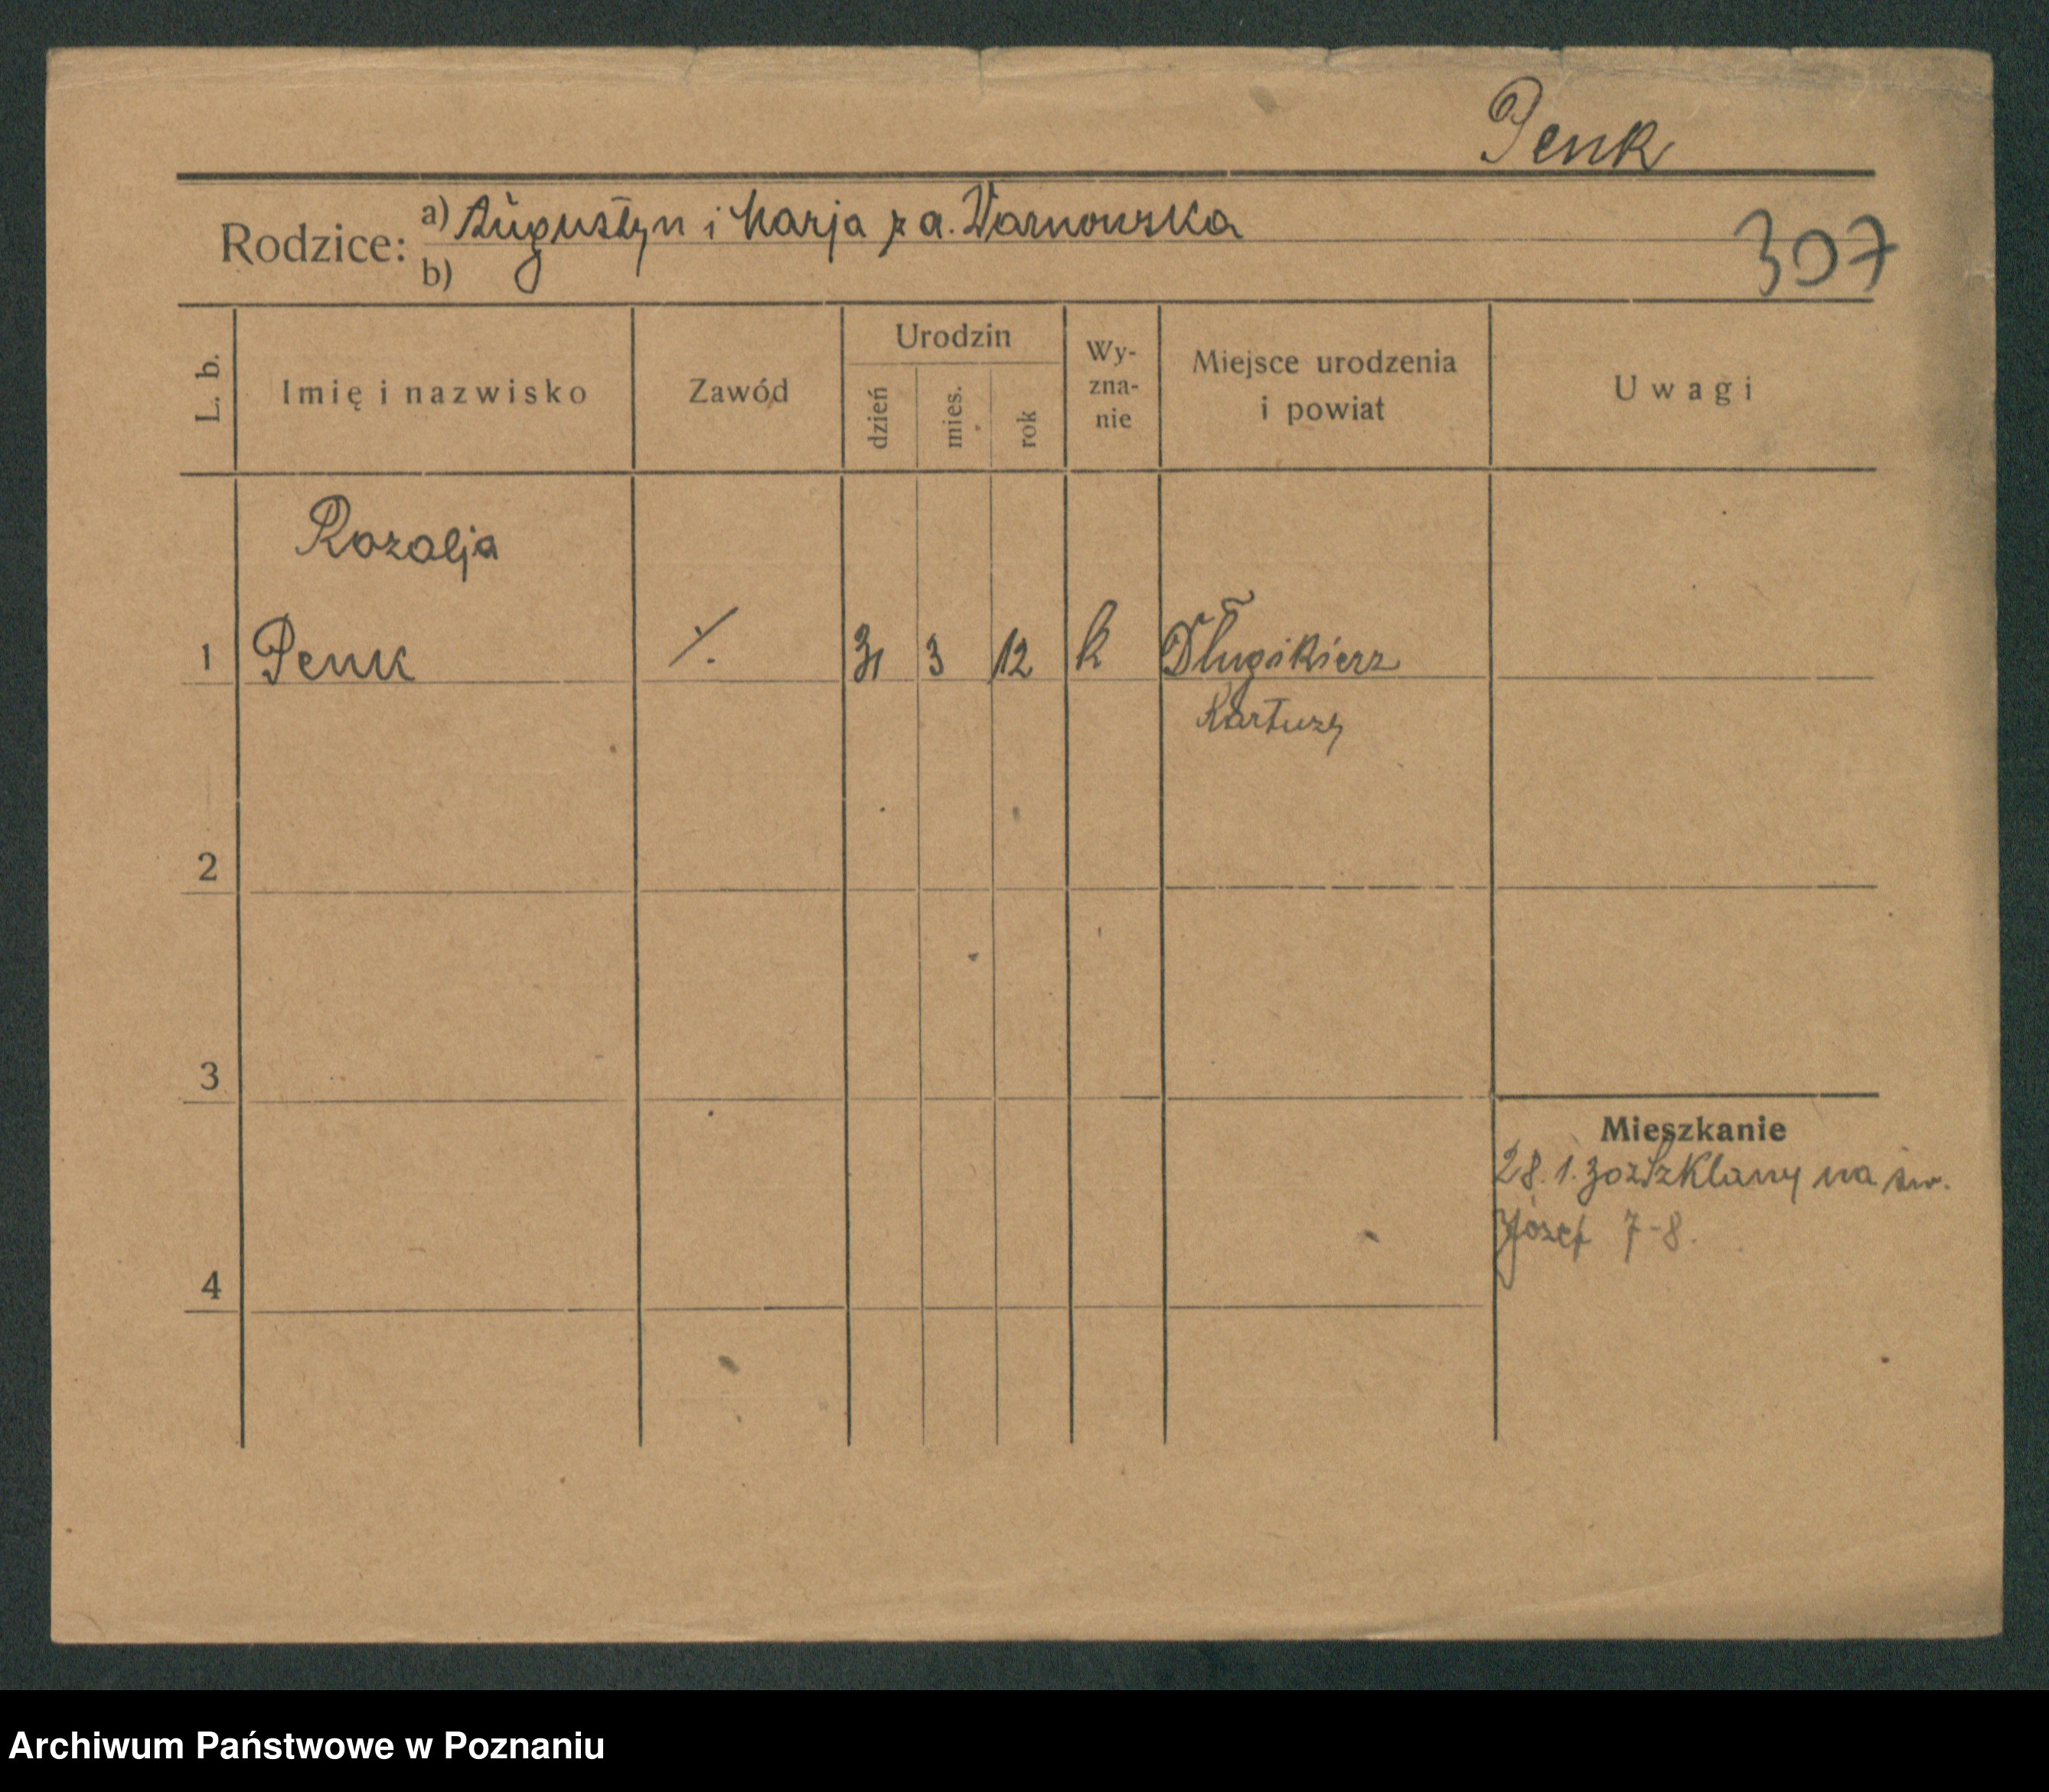 Penk
Rodzice: a) Augustyn i Marja z a. Warnowska
b)
307
L. b.
Imię i nazwisko
Zawód
Urodzin
dzień
mies.
rok
Wy-
zna-
nie
Miejsce urodzenia
i powiat
Uwagi
Rozalja
1 Penk ·/. 31 3 12 k Długikierz
Kartuzy
2
3
Mieszkanie
28. 1. 30 z Szklany na św.
Józef 7-8.
4
Archiwum Państwowe w Poznaniu